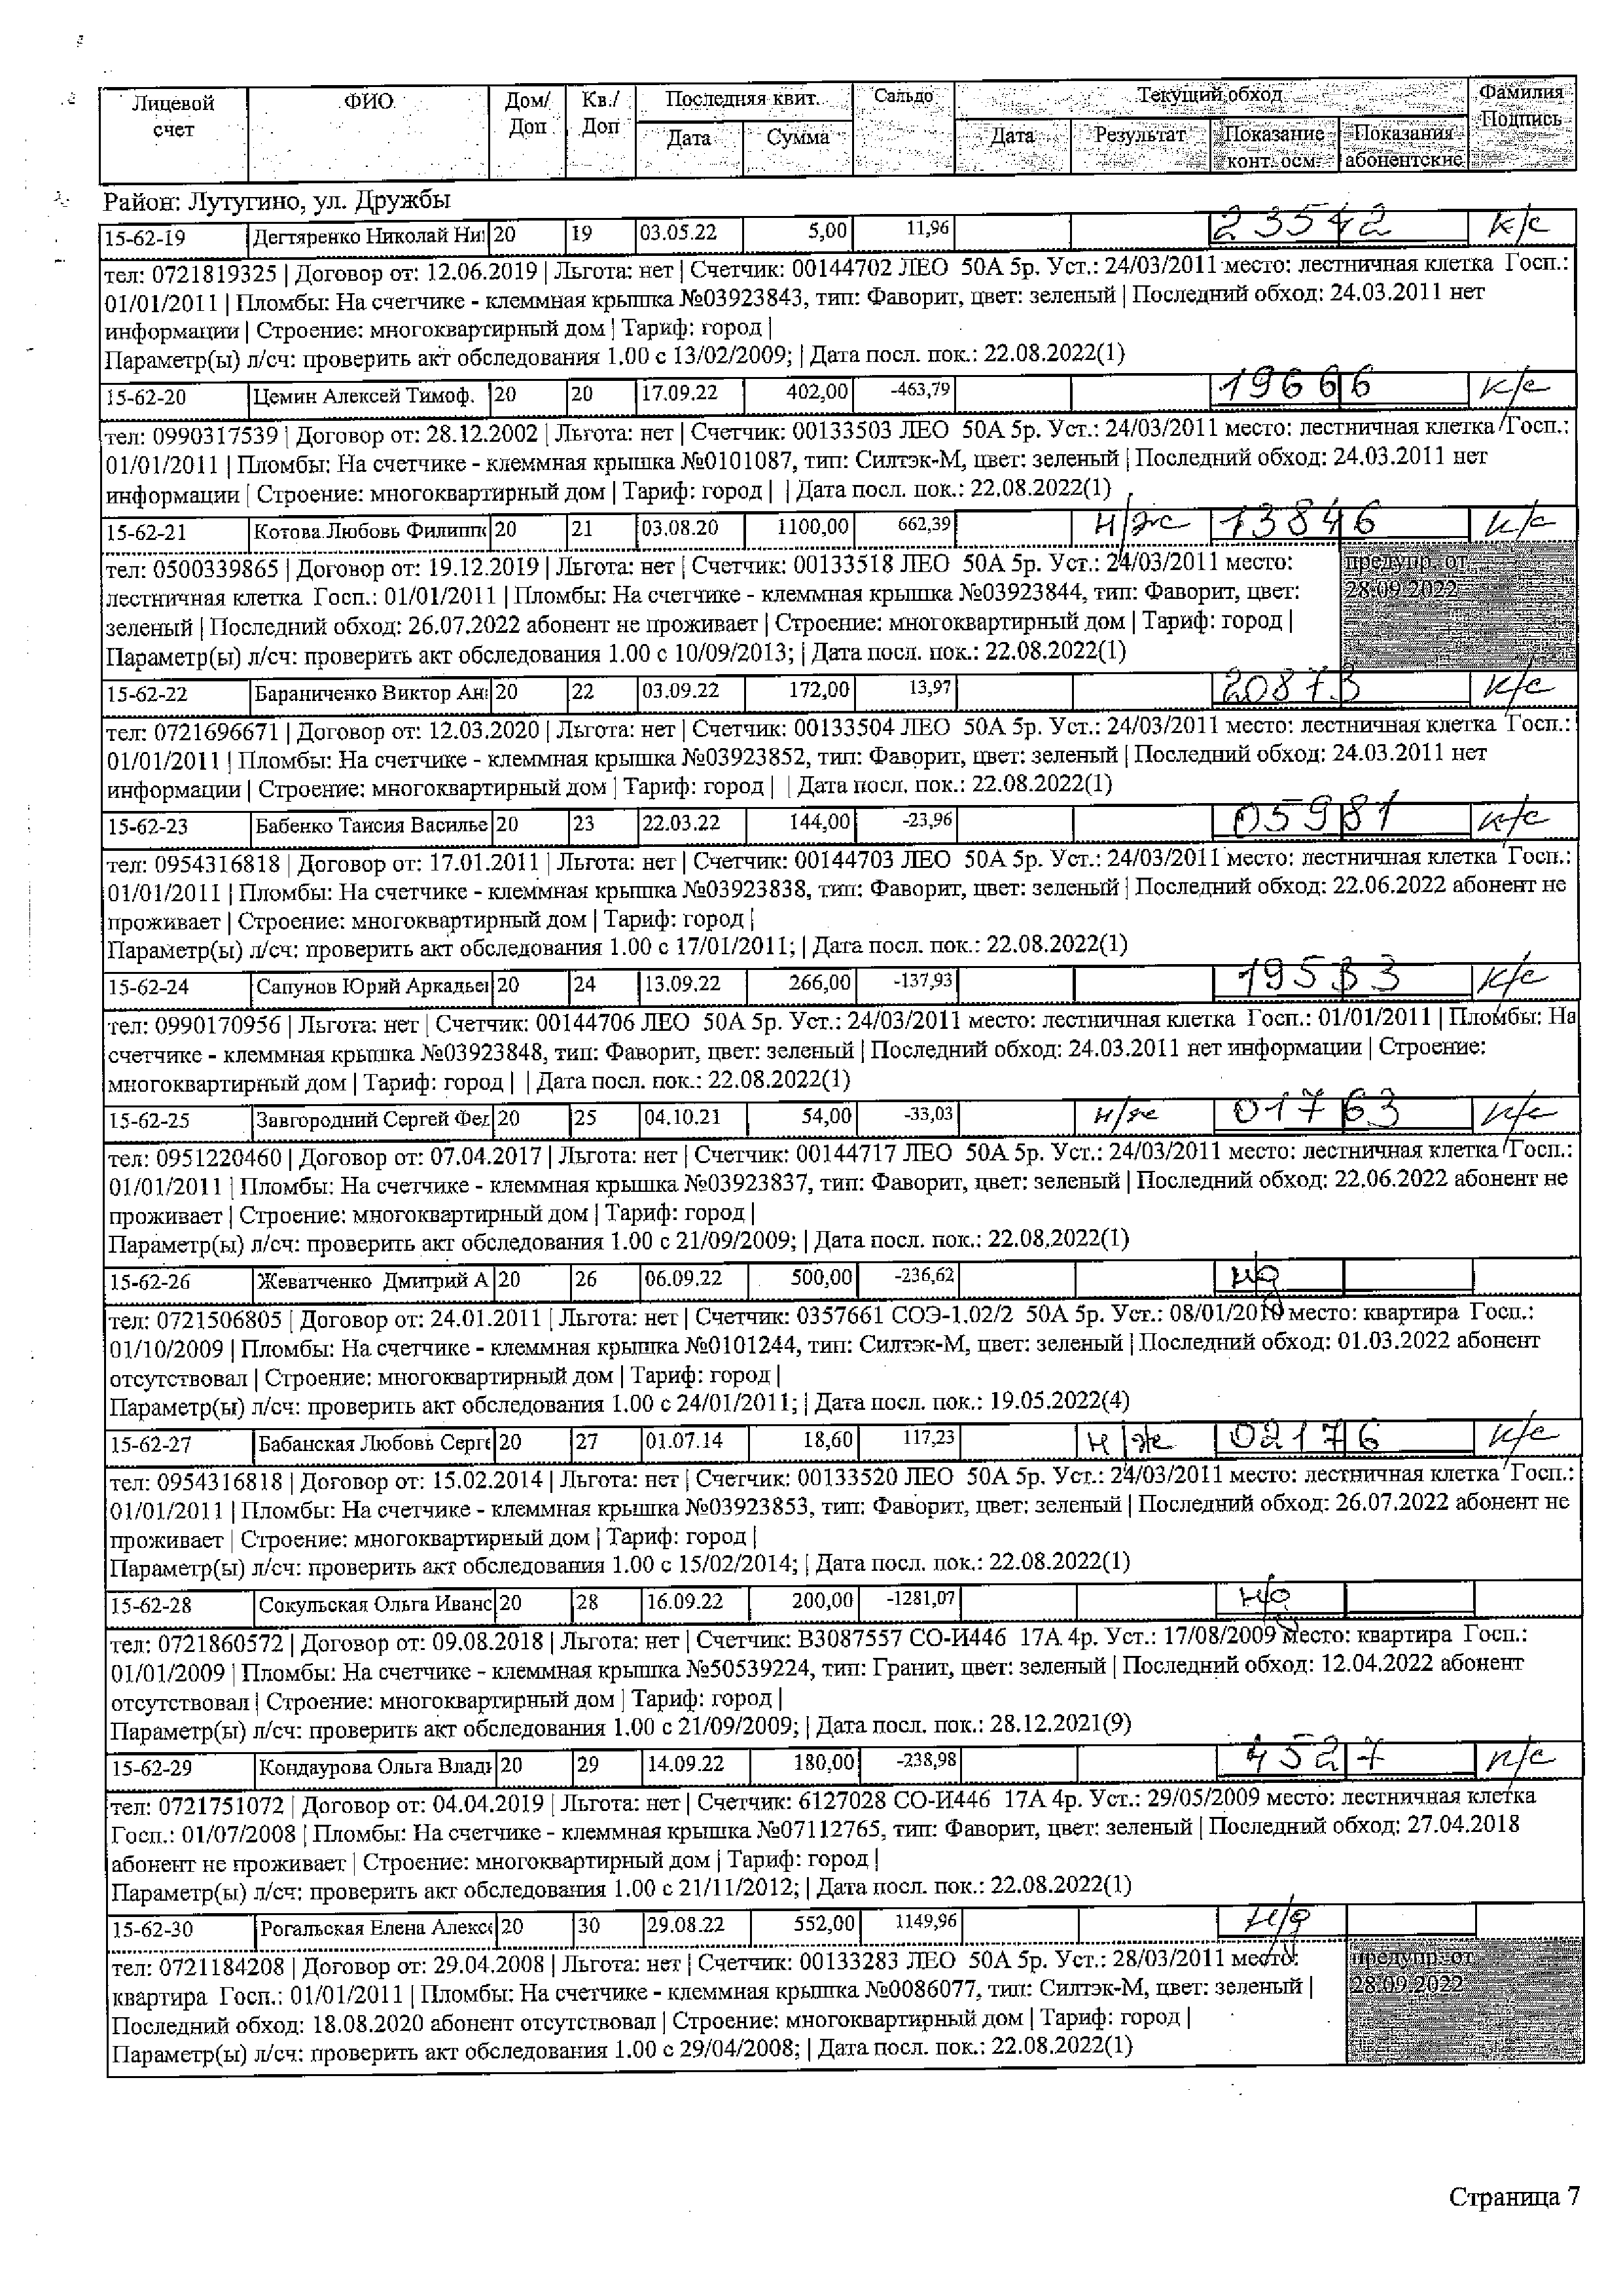 Лицевой счет | ФИО | Дом/Доп | Кв./Доп | Последняя квит. | Сальдо | Текущий обход | Фамилия Подпись
Дата | Сумма | Дата | Результат | Показание конт. осм. | Показания абонентские
Район: Лутугино, ул. Дружбы
15-62-19 | Дегтяренко Николай Ни | 20 | 19 | 03.05.22 | 5,00 | 11,96 | 23542 | к/с
тел: 0721819325 | Договор от: 12.06.2019 | Льгота: нет | Счетчик: 00144702 ЛЕО 50А 5р. Уст.: 24/03/2011 место: лестничная клетка Госп.:
01/01/2011 | Пломбы: На счетчике - клеммная крышка №03923843, тип: Фаворит, цвет: зеленый | Последний обход: 24.03.2011 нет
информации | Строение: многоквартирный дом | Тариф: город |
Параметр(ы) л/сч: проверить акт обследования 1.00 с 13/02/2009; | Дата посл. пок.: 22.08.2022(1)
15-62-20 | Цемин Алексей Тимоф. | 20 | 20 | 17.09.22 | 402,00 | -463,79 | 19666 | к/с
тел: 0990317539 | Договор от: 28.12.2002 | Льгота: нет | Счетчик: 00133503 ЛЕО 50А 5р. Уст.: 24/03/2011 место: лестничная клетка Госп.:
01/01/2011 | Пломбы: На счетчике - клеммная крышка №0101087, тип: Силтэк-М, цвет: зеленый | Последний обход: 24.03.2011 нет
информации | Строение: многоквартирный дом | Тариф: город | | Дата посл. пок.: 22.08.2022(1)
15-62-21 | Котова Любовь Филипп | 20 | 21 | 03.08.20 | 1100,00 | 662,39 | н/ж | 13846 | к/с
тел: 0500339865 | Договор от: 19.12.2019 | Льгота: нет | Счетчик: 00133518 ЛЕО 50А 5р. Уст.: 24/03/2011 место:
лестничная клетка Госп.: 01/01/2011 | Пломбы: На счетчике - клеммная крышка №03923844, тип: Фаворит, цвет:
зеленый | Последний обход: 26.07.2022 абонент не проживает | Строение: многоквартирный дом | Тариф: город |
Параметр(ы) л/сч: проверить акт обследования 1.00 с 10/09/2013; | Дата посл. пок.: 22.08.2022(1)
предупр. от
28.09.2022
15-62-22 | Бараниченко Виктор Ан | 20 | 22 | 03.09.22 | 172,00 | 13,97 | 20873 | к/с
тел: 0721696671 | Договор от: 12.03.2020 | Льгота: нет | Счетчик: 00133504 ЛЕО 50А 5р. Уст.: 24/03/2011 место: лестничная клетка Госп.:
01/01/2011 | Пломбы: На счетчике - клеммная крышка №03923852, тип: Фаворит, цвет: зеленый | Последний обход: 24.03.2011 нет
информации | Строение: многоквартирный дом | Тариф: город | | Дата посл. пок.: 22.08.2022(1)
15-62-23 | Бабенко Таисия Василье | 20 | 23 | 22.03.22 | 144,00 | -23,96 | 05981 | к/с
тел: 0954316818 | Договор от: 17.01.2011 | Льгота: нет | Счетчик: 00144703 ЛЕО 50А 5р. Уст.: 24/03/2011 место: лестничная клетка Госп.:
01/01/2011 | Пломбы: На счетчике - клеммная крышка №03923838, тип: Фаворит, цвет: зеленый | Последний обход: 22.06.2022 абонент не
проживает | Строение: многоквартирный дом | Тариф: город |
Параметр(ы) л/сч: проверить акт обследования 1.00 с 17/01/2011; | Дата посл. пок.: 22.08.2022(1)
15-62-24 | Сапунов Юрий Аркадье | 20 | 24 | 13.09.22 | 266,00 | -137,93 | 19533 | к/с
тел: 0990170956 | Льгота: нет | Счетчик: 00144706 ЛЕО 50А 5р. Уст.: 24/03/2011 место: лестничная клетка Госп.: 01/01/2011 | Пломбы: На
счетчике - клеммная крышка №03923848, тип: Фаворит, цвет: зеленый | Последний обход: 24.03.2011 нет информации | Строение:
многоквартирный дом | Тариф: город | | Дата посл. пок.: 22.08.2022(1)
15-62-25 | Завгородний Сергей Фед | 20 | 25 | 04.10.21 | 54,00 | -33,03 | н/ж | 01763 | к/с
тел: 0951220460 | Договор от: 07.04.2017 | Льгота: нет | Счетчик: 00144717 ЛЕО 50А 5р. Уст.: 24/03/2011 место: лестничная клетка Госп.:
01/01/2011 | Пломбы: На счетчике - клеммная крышка №03923837, тип: Фаворит, цвет: зеленый | Последний обход: 22.06.2022 абонент не
проживает | Строение: многоквартирный дом | Тариф: город |
Параметр(ы) л/сч: проверить акт обследования 1.00 с 21/09/2009; | Дата посл. пок.: 22.08.2022(1)
15-62-26 | Жеватченко Дмитрий А | 20 | 26 | 06.09.22 | 500,00 | -236,62 | н/д
тел: 0721506805 | Договор от: 24.01.2011 | Льгота: нет | Счетчик: 0357661 СОЭ-1.02/2 50А 5р. Уст.: 08/01/2010 место: квартира Госп.:
01/10/2009 | Пломбы: На счетчике - клеммная крышка №0101244, тип: Силтэк-М, цвет: зеленый | Последний обход: 01.03.2022 абонент
отсутствовал | Строение: многоквартирный дом | Тариф: город |
Параметр(ы) л/сч: проверить акт обследования 1.00 с 24/01/2011; | Дата посл. пок.: 19.05.2022(4)
15-62-27 | Бабанская Любовь Серге | 20 | 27 | 01.07.14 | 18,60 | 117,23 | н/ж | 02176 | к/с
тел: 0954316818 | Договор от: 15.02.2014 | Льгота: нет | Счетчик: 00133520 ЛЕО 50А 5р. Уст.: 24/03/2011 место: лестничная клетка Госп.:
01/01/2011 | Пломбы: На счетчике - клеммная крышка №03923853, тип: Фаворит, цвет: зеленый | Последний обход: 26.07.2022 абонент не
проживает | Строение: многоквартирный дом | Тариф: город |
Параметр(ы) л/сч: проверить акт обследования 1.00 с 15/02/2014; | Дата посл. пок.: 22.08.2022(1)
15-62-28 | Сокульская Ольга Иванс | 20 | 28 | 16.09.22 | 200,00 | -1281,07 | н/д
тел: 0721860572 | Договор от: 09.08.2018 | Льгота: нет | Счетчик: В3087557 СО-И446 17А 4р. Уст.: 17/08/2009 место: квартира Госп.:
01/01/2009 | Пломбы: На счетчике - клеммная крышка №50539224, тип: Гранит, цвет: зеленый | Последний обход: 12.04.2022 абонент
отсутствовал | Строение: многоквартирный дом | Тариф: город |
Параметр(ы) л/сч: проверить акт обследования 1.00 с 21/09/2009; | Дата посл. пок.: 28.12.2021(9)
15-62-29 | Кондаурова Ольга Влад | 20 | 29 | 14.09.22 | 180,00 | -238,98 | 4527 | к/с
тел: 0721751072 | Договор от: 04.04.2019 | Льгота: нет | Счетчик: 6127028 СО-И446 17А 4р. Уст.: 29/05/2009 место: лестничная клетка
Госп.: 01/07/2008 | Пломбы: На счетчике - клеммная крышка №07112765, тип: Фаворит, цвет: зеленый | Последний обход: 27.04.2018
абонент не проживает | Строение: многоквартирный дом | Тариф: город |
Параметр(ы) л/сч: проверить акт обследования 1.00 с 21/11/2012; | Дата посл. пок.: 22.08.2022(1)
15-62-30 | Рогальская Елена Алекс | 20 | 30 | 29.08.22 | 552,00 | 1149,96 | н/д
тел: 0721184208 | Договор от: 29.04.2008 | Льгота: нет | Счетчик: 00133283 ЛЕО 50А 5р. Уст.: 28/03/2011 место:
квартира Госп.: 01/01/2011 | Пломбы: На счетчике - клеммная крышка №0086077, тип: Силтэк-М, цвет: зеленый |
Последний обход: 18.08.2020 абонент отсутствовал | Строение: многоквартирный дом | Тариф: город |
Параметр(ы) л/сч: проверить акт обследования 1.00 с 29/04/2008; | Дата посл. пок.: 22.08.2022(1)
предупр. от
28.09.2022
Страница 7